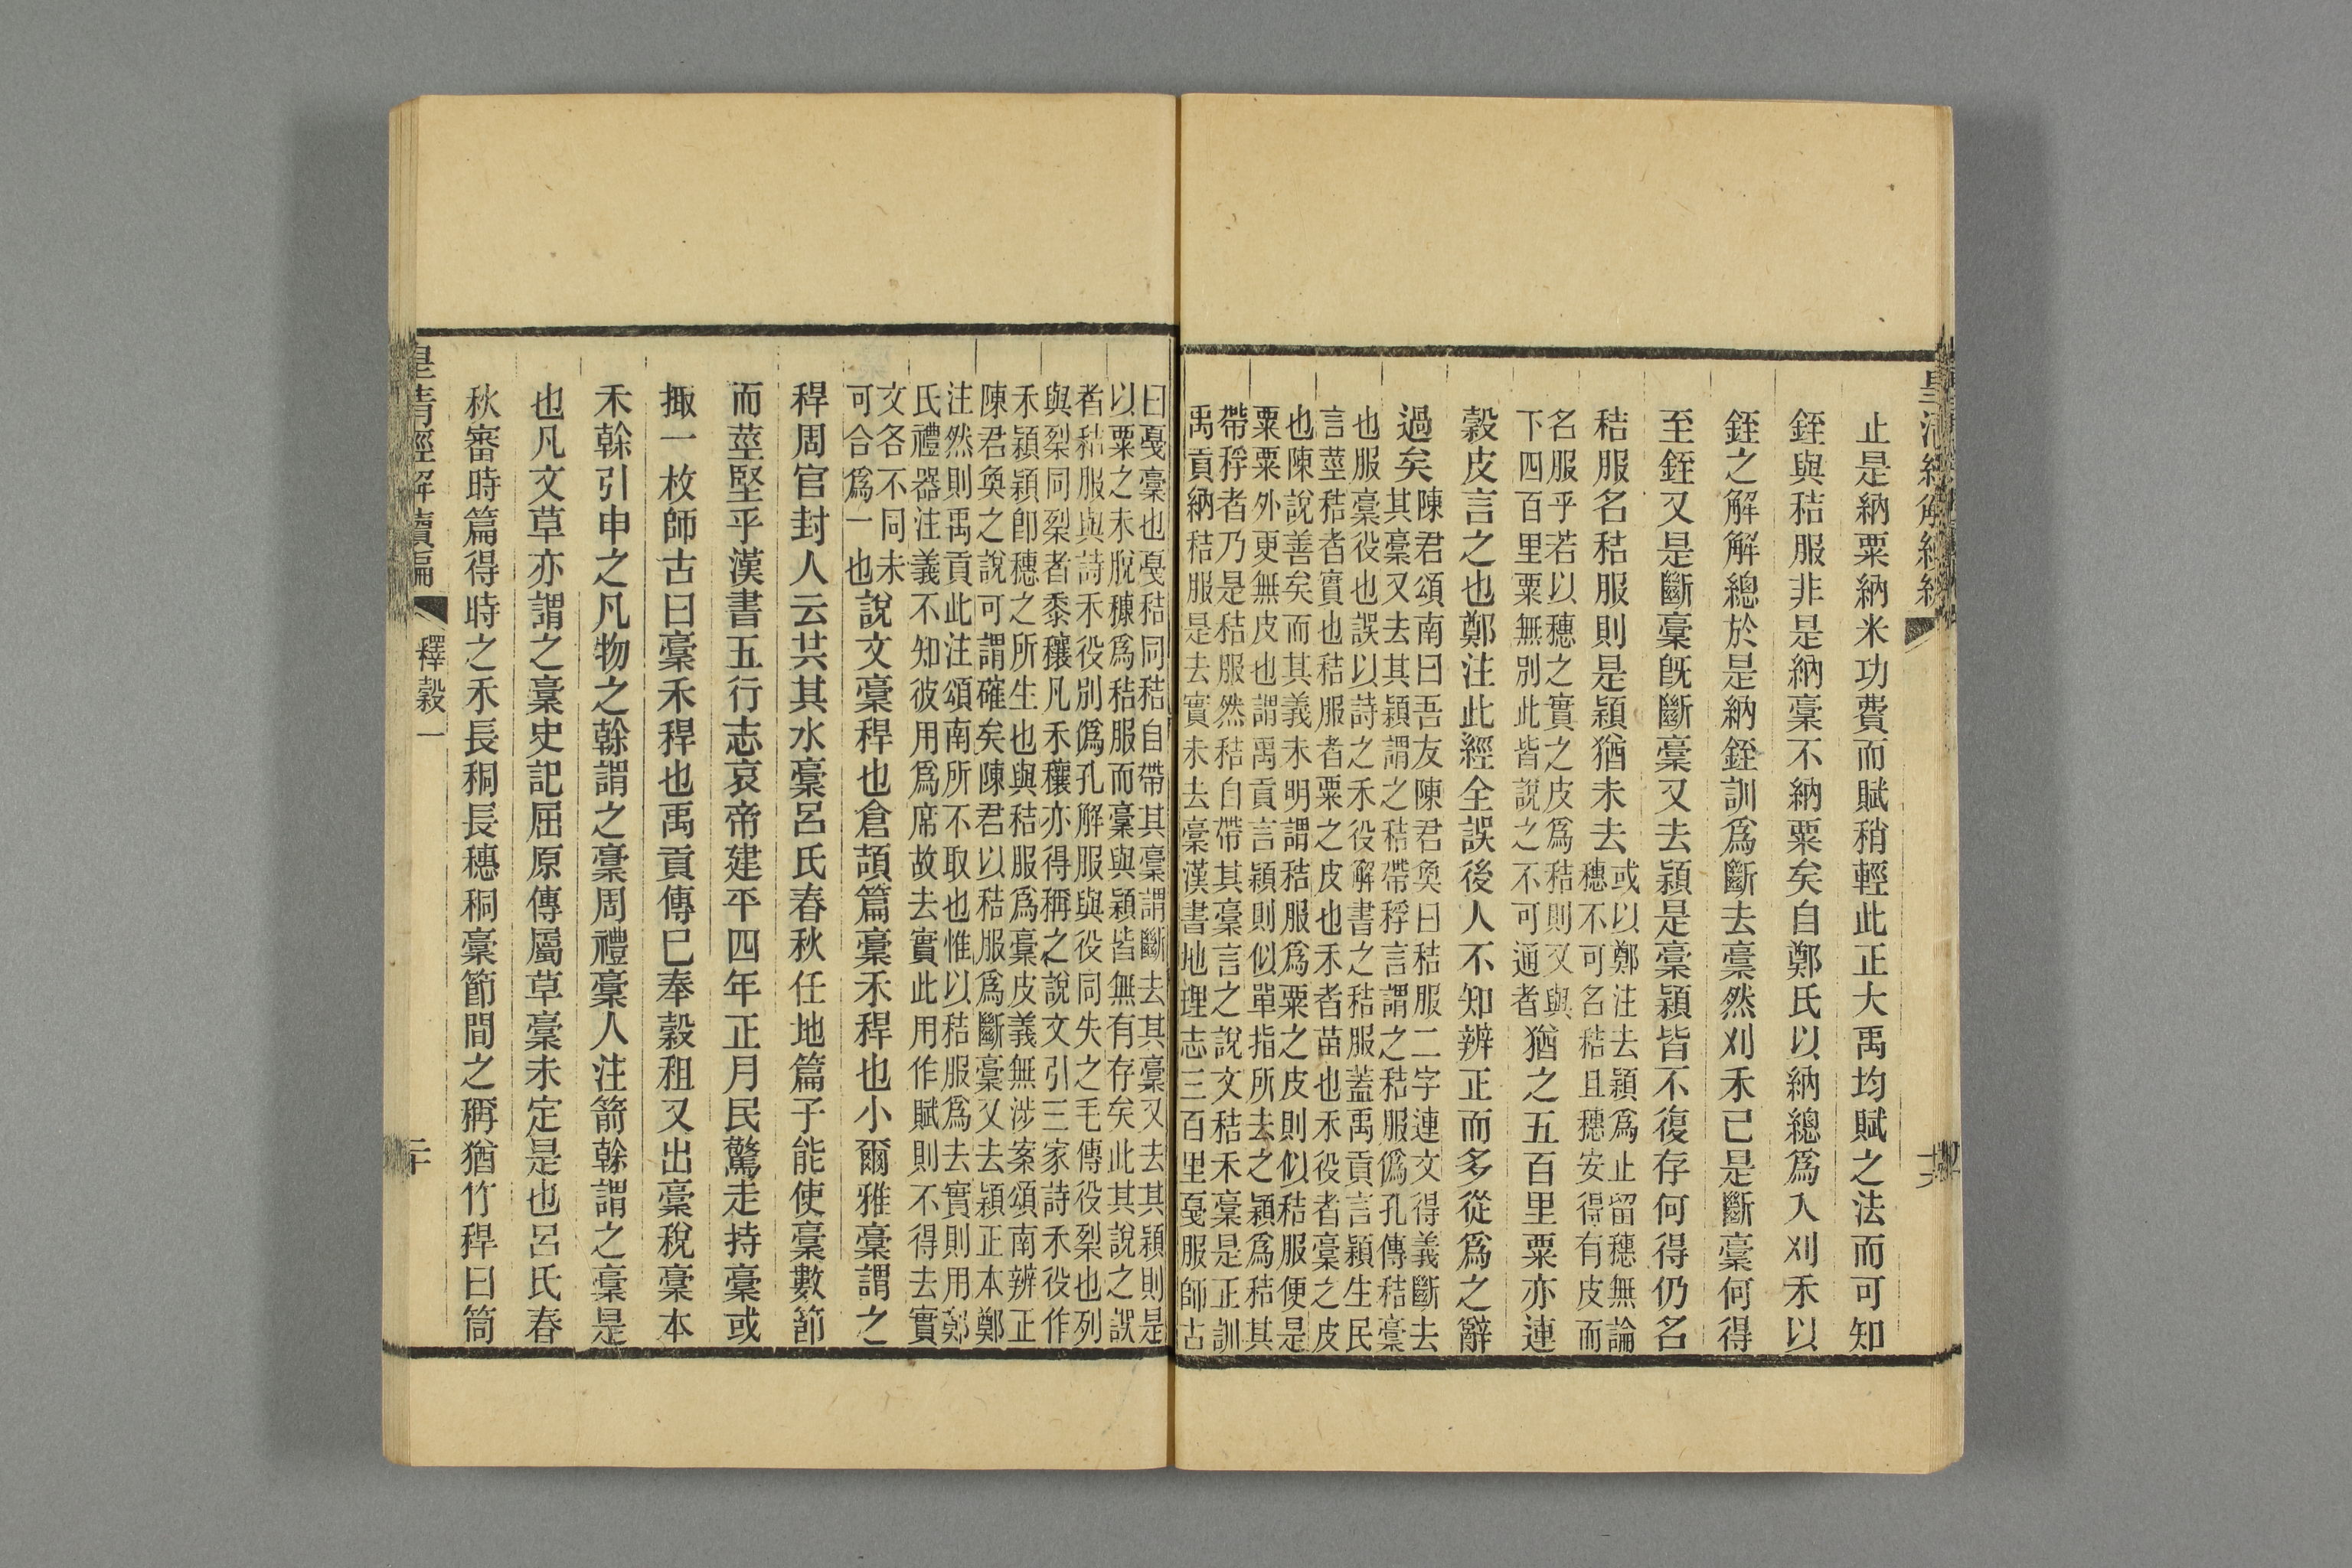 止是納粟納米功費而賦稍輕此正大禹均賦之法而可知
銍與秸服非是納稾不納粟矣自鄭氏以納總爲入刈禾以
銍之解解總於是納銍訓爲斷去稾然刈禾已是斷稾何得
至銍又是斷稾旣斷稾又去穎是稾穎皆不復存何得仍名
秸服名秸服則是穎猶未去
或以鄭注去穎爲止留穗無論
穗不可名秸且穗安得有皮而
名服乎若以穗之實之皮爲秸則又與
下四百里粟無別此皆說之不可通者
猶之五百里粟亦連
穀皮言之也鄭注此經全誤後人不知辨正而多從爲之辭
過矣
陳君頌南曰吾友陳君奐曰秸服二字連文得義斷去
其稾又去其穎謂之秸帶稃言謂之秸服僞孔傳秸稾
也服稾役也誤以詩之禾役解書之秸服蓋禹貢言穎生民
言莖秸者實也秸服者粟之皮也禾者苗也禾役者稾之皮
也陳說善矣而其義未明謂秸服爲粟之皮則似秸服便是
粟粟外更無皮也謂禹貢言穎則似單指所去之穎爲秸其
帶稃者乃是秸服然秸自帶其稾言之說文秸禾稾是正訓
禹貢納秸服是去實未去稾漢書地理志三百里戛服師古
曰戛稾也戛秸同秸自帶其稾謂斷去其稾又去其穎則是
以粟之未脫穅爲秸服而稾與穎皆無有存矣此其說之誤
者秸服與詩禾役別僞孔解服與役同失之毛傳役裂也列
與梨同梨者黍穰凡禾穰亦得稱之說文引三家詩禾役作
禾穎穎卽穗之所生也與秸服爲稾皮義無涉案頌南辨正
陳君奐之說可謂確矣陳君以秸服爲斷稾又去穎正本鄭
注然則禹貢此注頌南所不取也惟以秸服爲去實則用鄭
氏禮器注義不知彼用爲席故去實此用作賦則不得去實
文各不同未
可合爲一也
說文稾稈也倉頡篇稾禾稈也小爾雅稾謂之
稈周官封人云共其水稾呂氏春秋任地篇子能使稾數節
而莖堅乎漢書五行志哀帝建平四年正月民驚走持稾或
掫一枚師古曰稾禾稈也禹貢傳已奉穀租又出稾稅稾本
禾榦引申之凡物之榦謂之稾周禮稾人注箭榦謂之稾是
也凡文草亦謂之稾史記屈原傳屬草稾未定是也呂氏春
秋審時篇得時之禾長秱長穗秱稾節間之稱猶竹稈曰筒
皇淸經解續編
釋穀一
二十